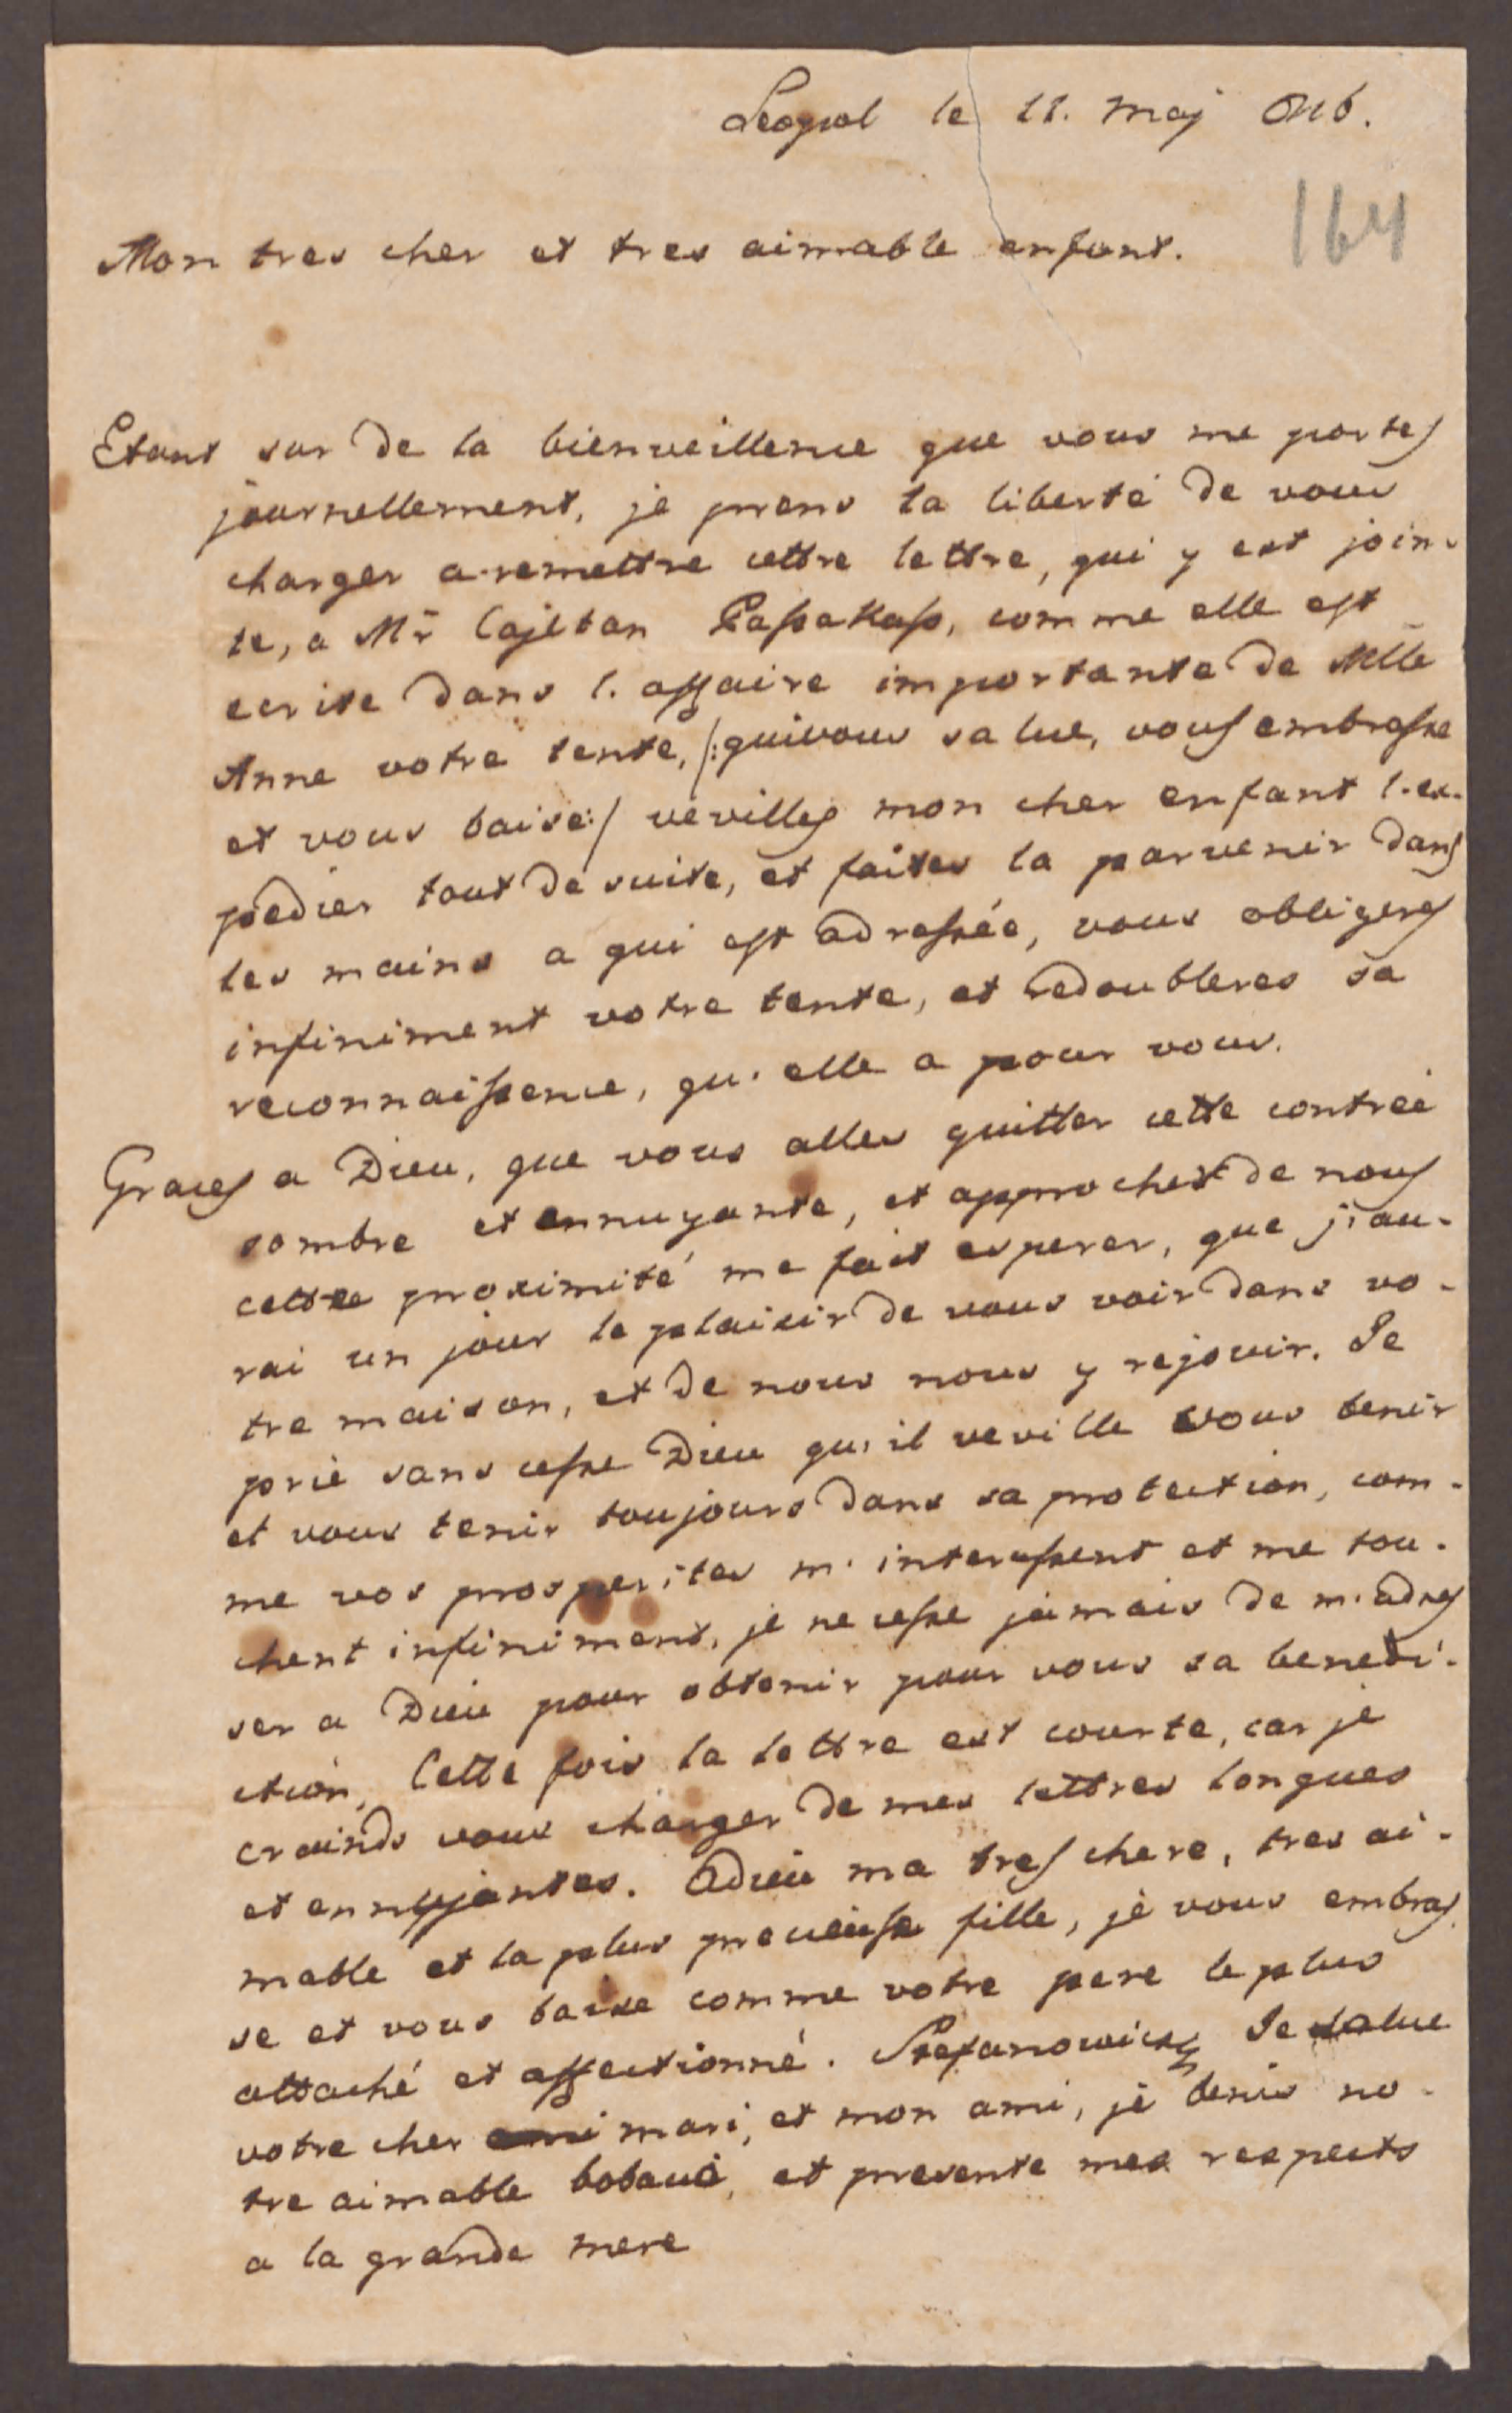 Leopol le 11. Maj 846.
164
Mon tres cher et tres aimable enfant.
Etant sur de la bienveillence que vous me portes
journellement, je prens la liberté de vous
charger a remettre cettre lettre, qui y est join-
te, a Mr Cajetan Passakass, comme elle est
ecrite dans l'affaire importante de Melle
Anne votre tente, /:qui vous salue, vous embrasse
et vous baise:/ vevilles mon cher enfant l'ex-
pedier tout de suite, et faites la parvenir dans
les mains a qui est adressée, vous obligeres
infiniment votre tente, et redoubleres sa
reconnaissence, qu'elle a pour vous.
Graces a Dieu, que vous alles quitter cette contreé
sombre et ennuyante, et approchet de nous
cettre proximité me fait esperer, que j'au-
rai un jour le plaisir de vous voir dans vo-
tre maison, et de nous nous y rejouir. Je
prie sans cesse Dieu qu'il veville vous benir
et vous tenir toujours dans sa protection, com-
me vos prosperites m'interessent et me tou-
chent infiniment, je ne cesse jamais de m'adres
ser a Dieu pour obtenir pour vous sa benedi-
ction, Cette fois la lettre est courte, car je
crainds vous charger de mes lettres longues
et ennyjantes. Adieu ma tres chere, tres ai-
mable et la plus precieuse fille, je vous embras
se et vous baise comme votre pere le plus
attaché et affectionné. Stefanowicz Je salue
votre cher mari, et mon ami, je benis no-
tre aimable et presente mes respects
a la grande mere